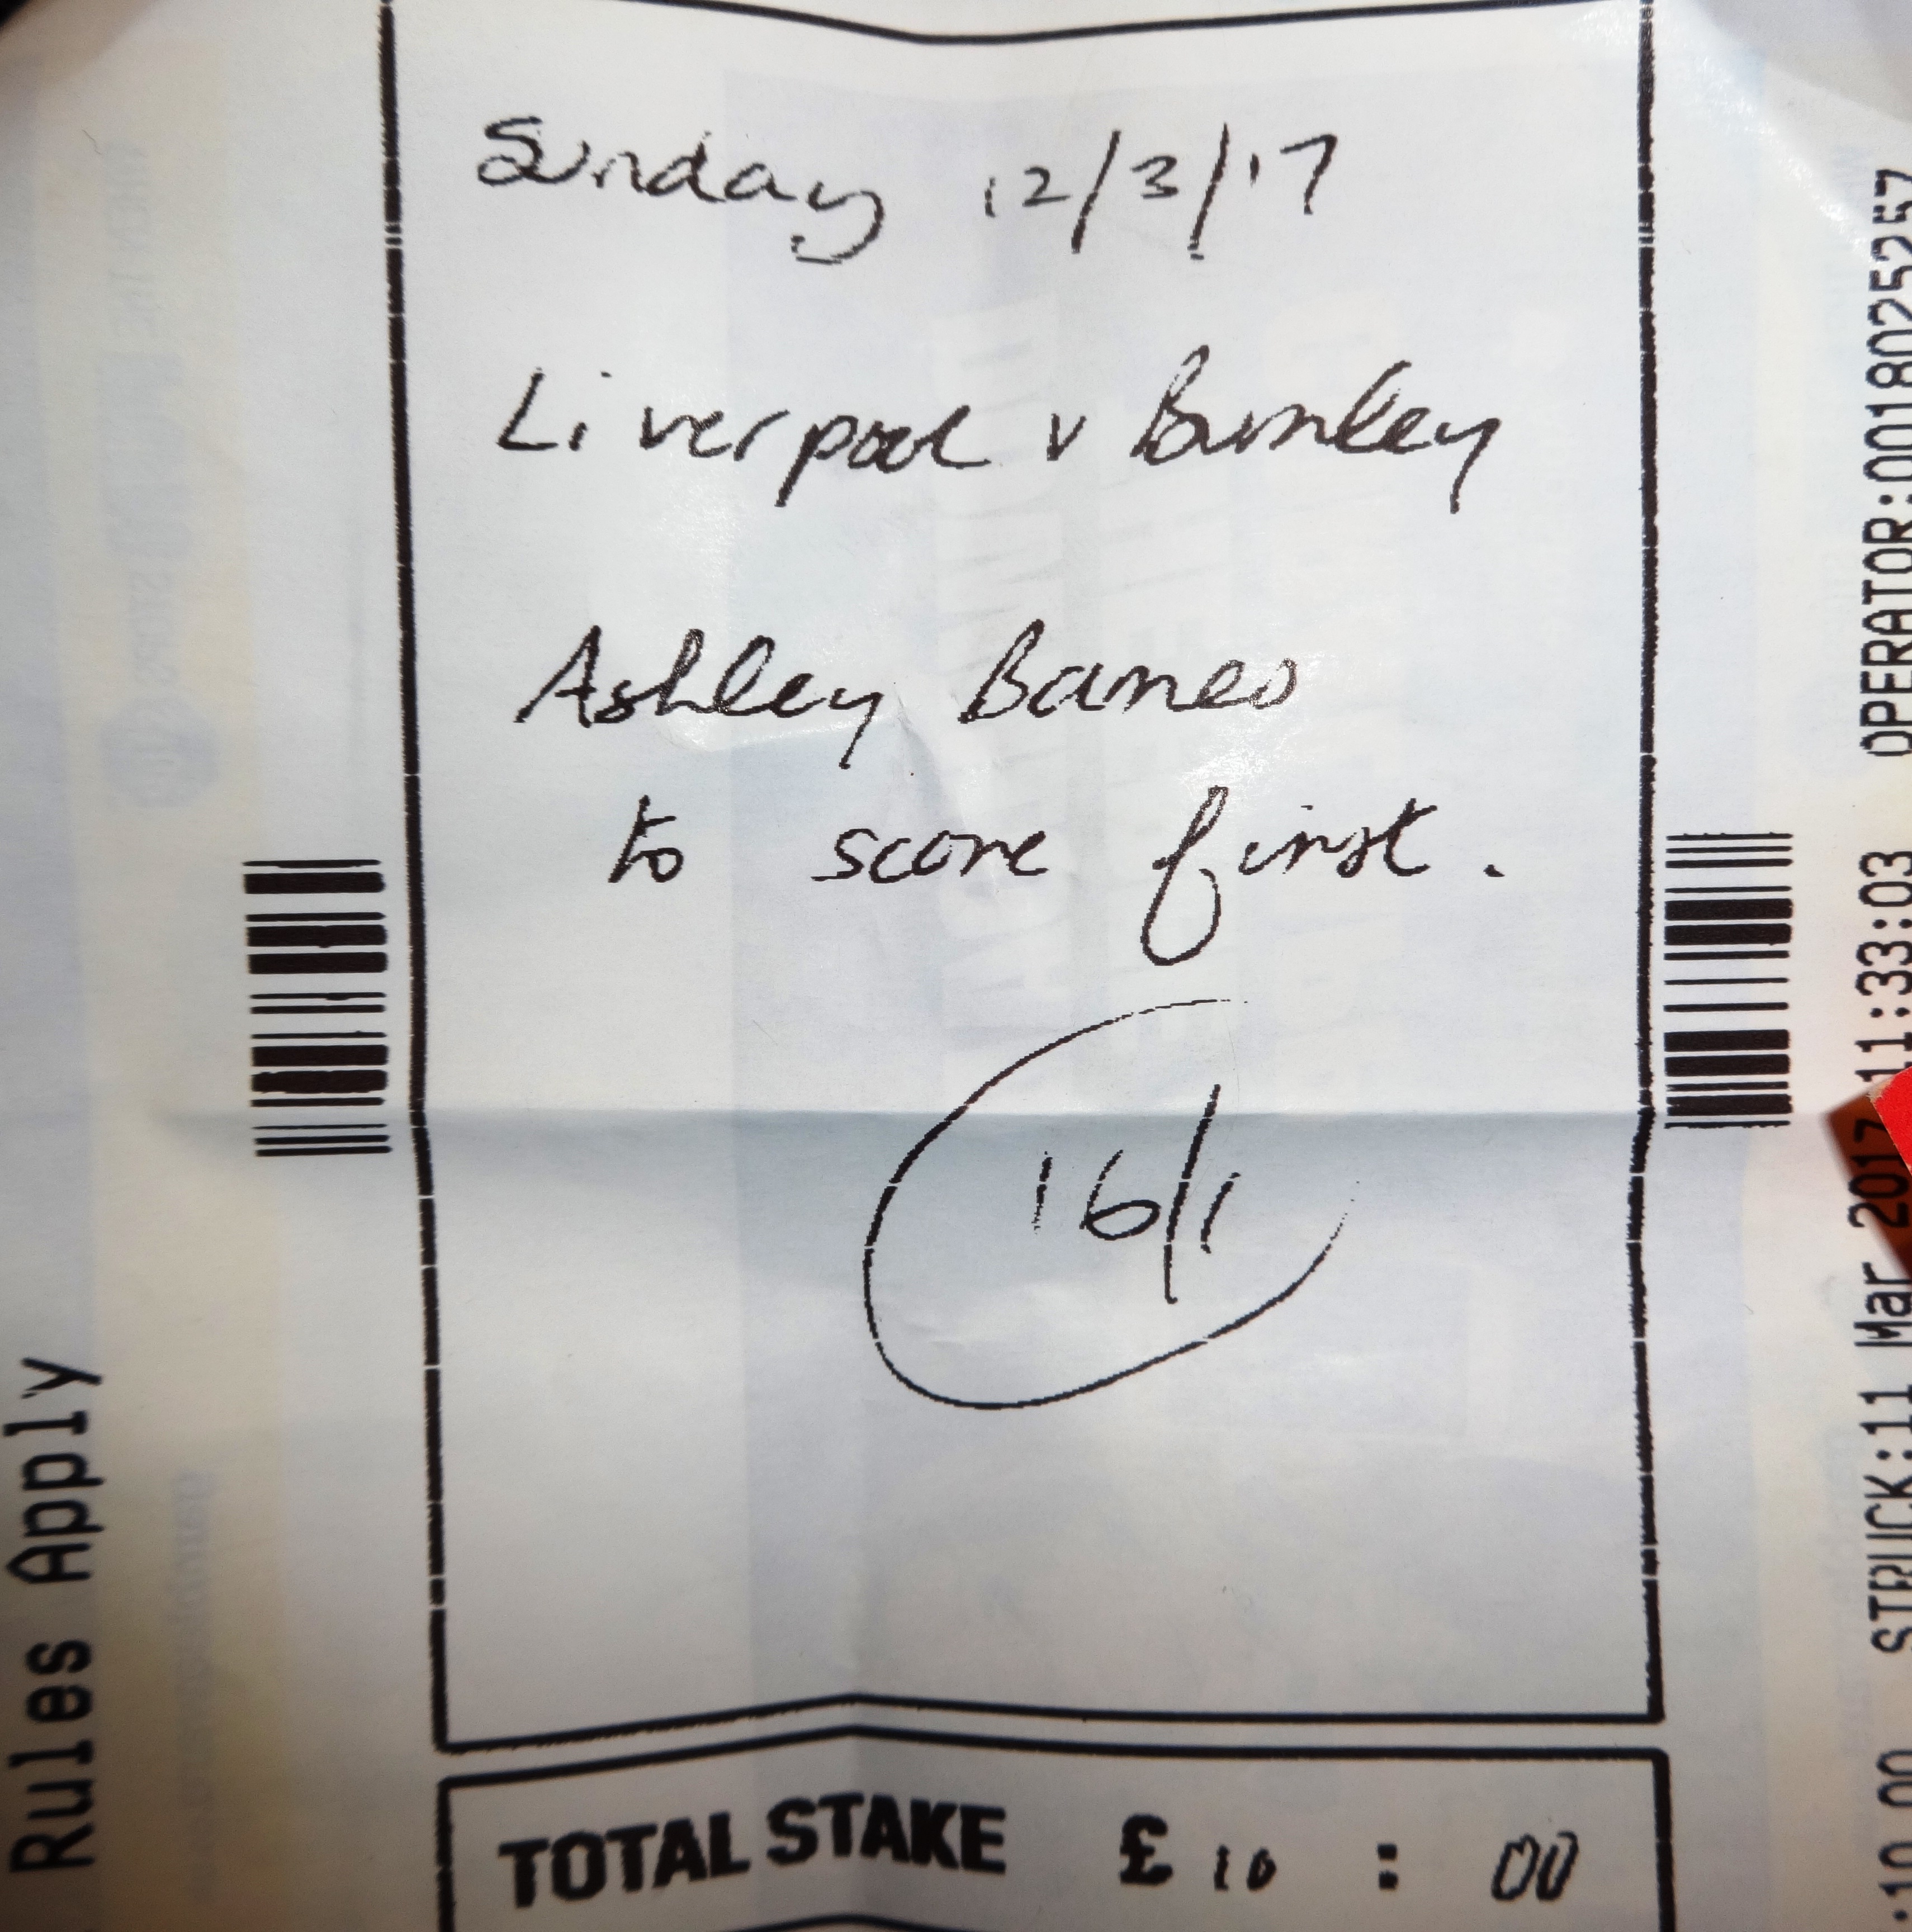 Sunday 12/3/17
Liverpool v Burnley
Ashley Barnes
to score first.
16/1
TOTAL STAKE £ 10 : 00
Rules Apply
10.00 STRUCK:11 Mar 2017 11:33:03 OPERATOR:0018025257